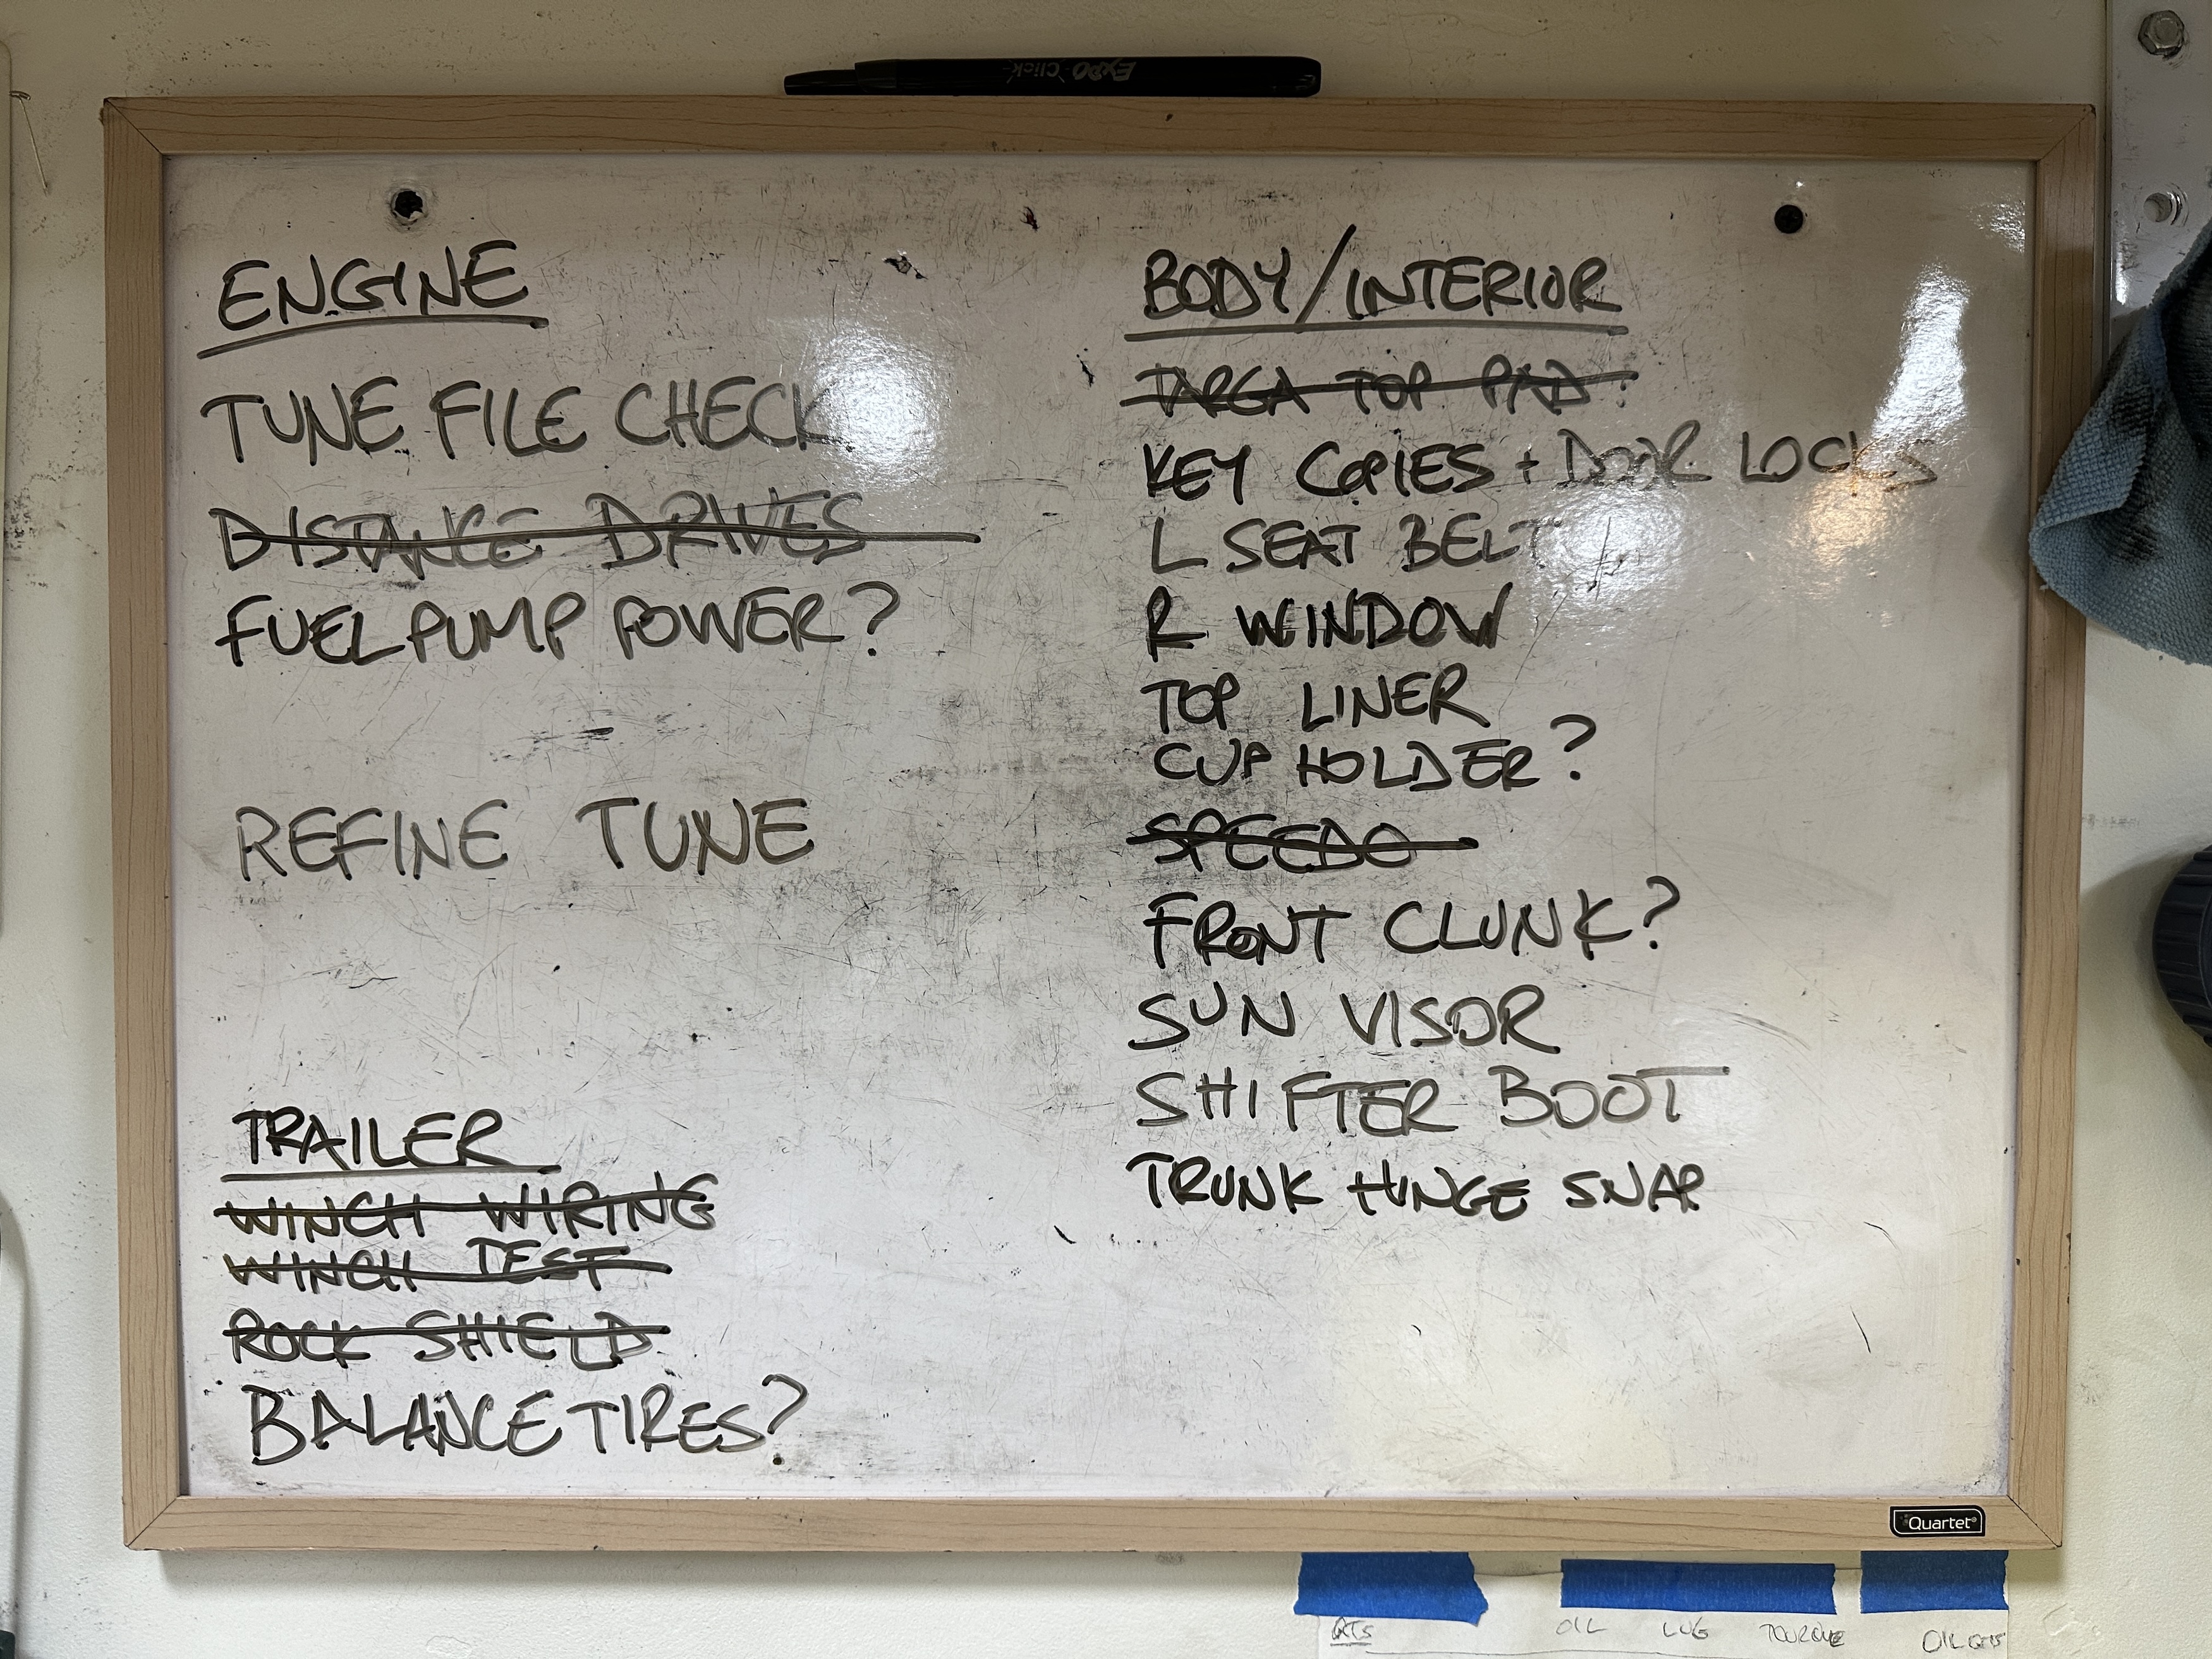 EXPO Click
ENGINE
TUNE FILE CHECK
DISTANCE DRIVES
FUEL PUMP POWER?
REFINE TUNE
TRAILER
WINCH WIRING
WINCH TEST
ROCK SHIELD
BALANCE TIRES?
BODY/INTERIOR
TARGA TOP PAD?
KEY COPIES + DOOR LOCKS
L SEAT BELT
R WINDOW
TOP LINER
CUP HOLDER?
SPEEDO
FRONT CLUNK?
SUN VISOR
SHIFTER BOOT
TRUNK HINGE SNAP
Quartet®
QTS OIL LUG TORQUE OIL QTS